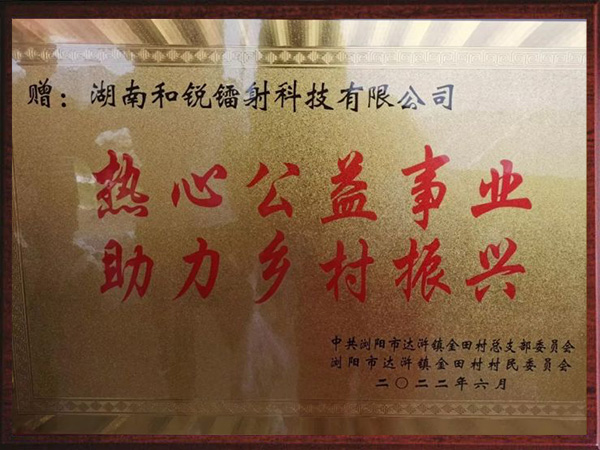 赠：湖南和锐镭射科技有限公司
热心公益事业
助力乡村振兴
中共浏阳市达浒镇金田村总支部委员会
浏阳市达浒镇金田村村民委员会
二〇二二年六月